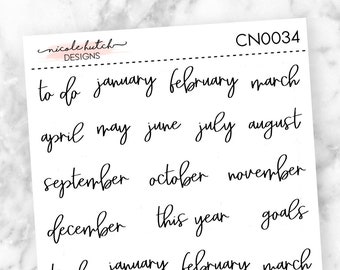 nicole hutch
DESIGNS
CN0034
to do january february march
april may june july august
september october november
december this year goals
to do january february march